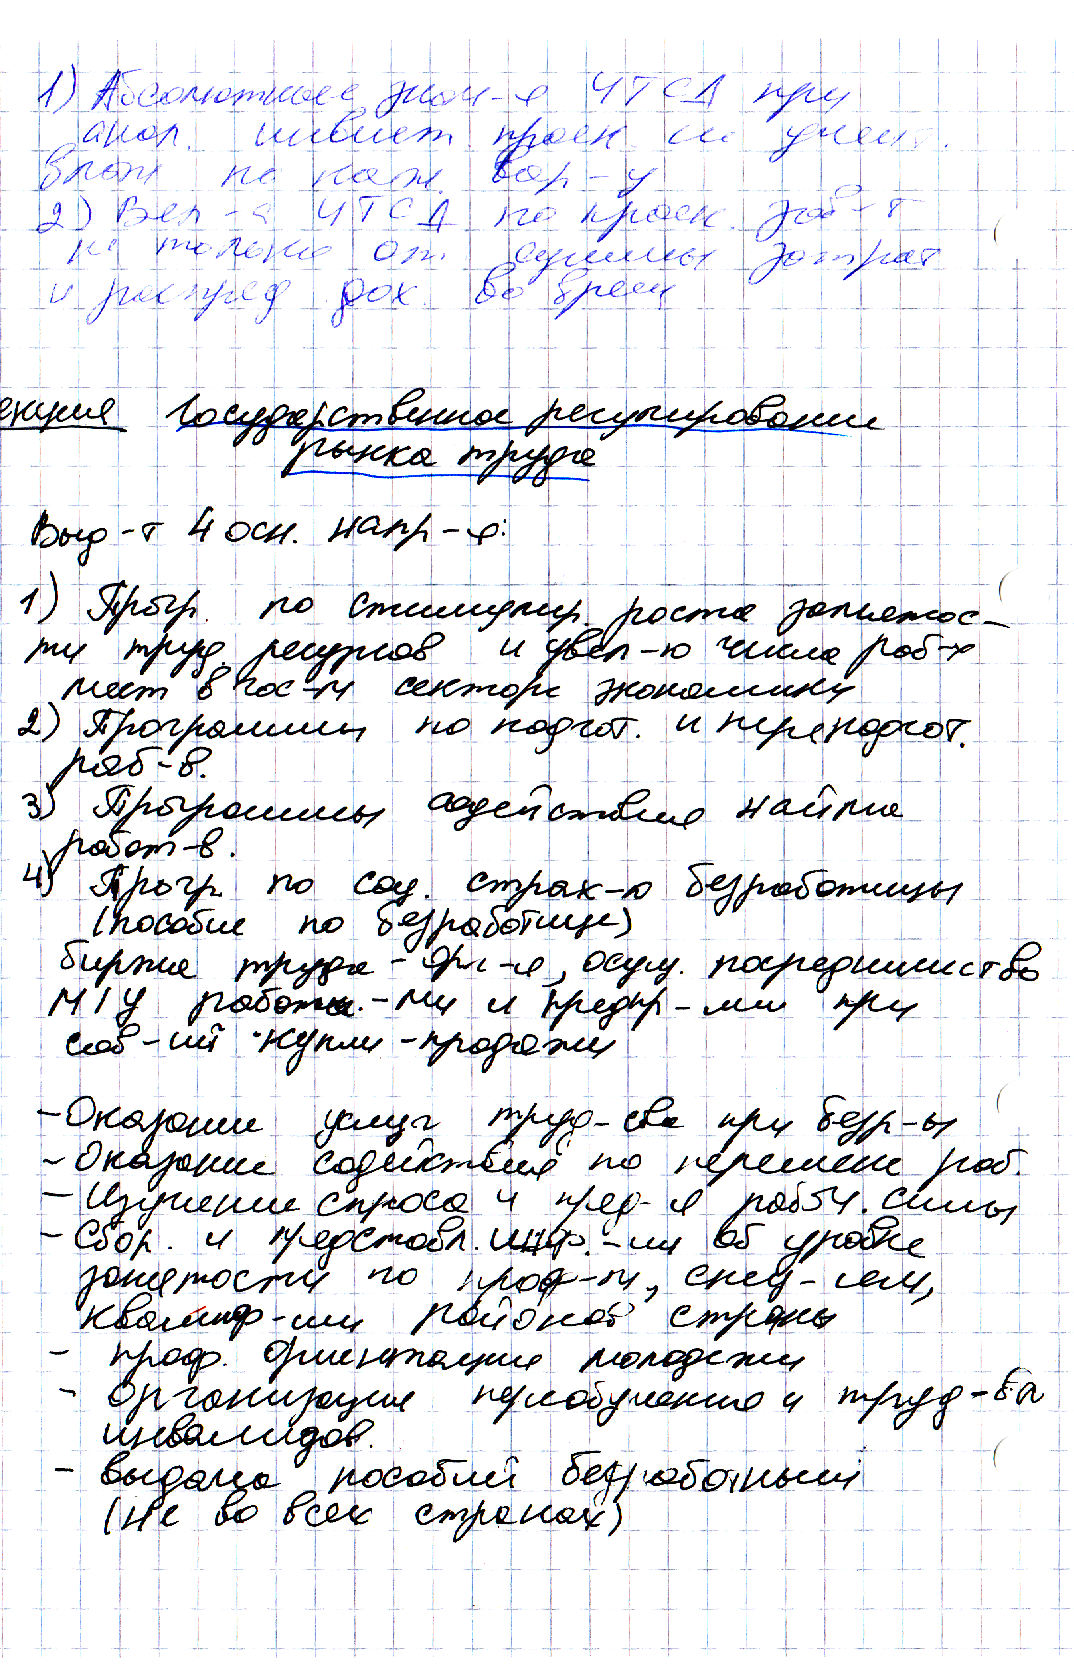 1) Абсолютное знач-е ЧТСД при
анал. инвест проек не учит.
влож по кажд. вар-у
2) Вел-а ЧТСД по проек. зав-т
не только от суммы затрат
и распред дох. во врем
екция Государственное регулирование
рынка труда
Выд-т 4 осн. напр-я:
1) Прогр. по стимулир. роста занятос-
ти труд. ресурсов и увел-ю числа раб-х
мест в гос-м секторе экономики
2) Программы по подгот. и переподгот.
раб-в.
3) Программы содействия найма
работ-в.
4) Прогр. по соц. страх-ю безработицы
(пособие по безработице)
биржа труда - орг-я, осущ. посредничество
м/у работн.-ми и предпр-ми при
сов-ий купли-продажи
- Оказание услуг труд-ва при безр-ы
- Оказание содействия по перемене раб.
- Изучение спроса и пред-я рабоч. силы
- Сбор. и представл. инф.-ии об уровне
занятости по проф-м, спец-ям,
квалиф-ии районов страны
- проф. ориентация молодежи
- организация переобучения и труд-ва
инвалидов.
- выдача пособий безработным
(не во всех странах)